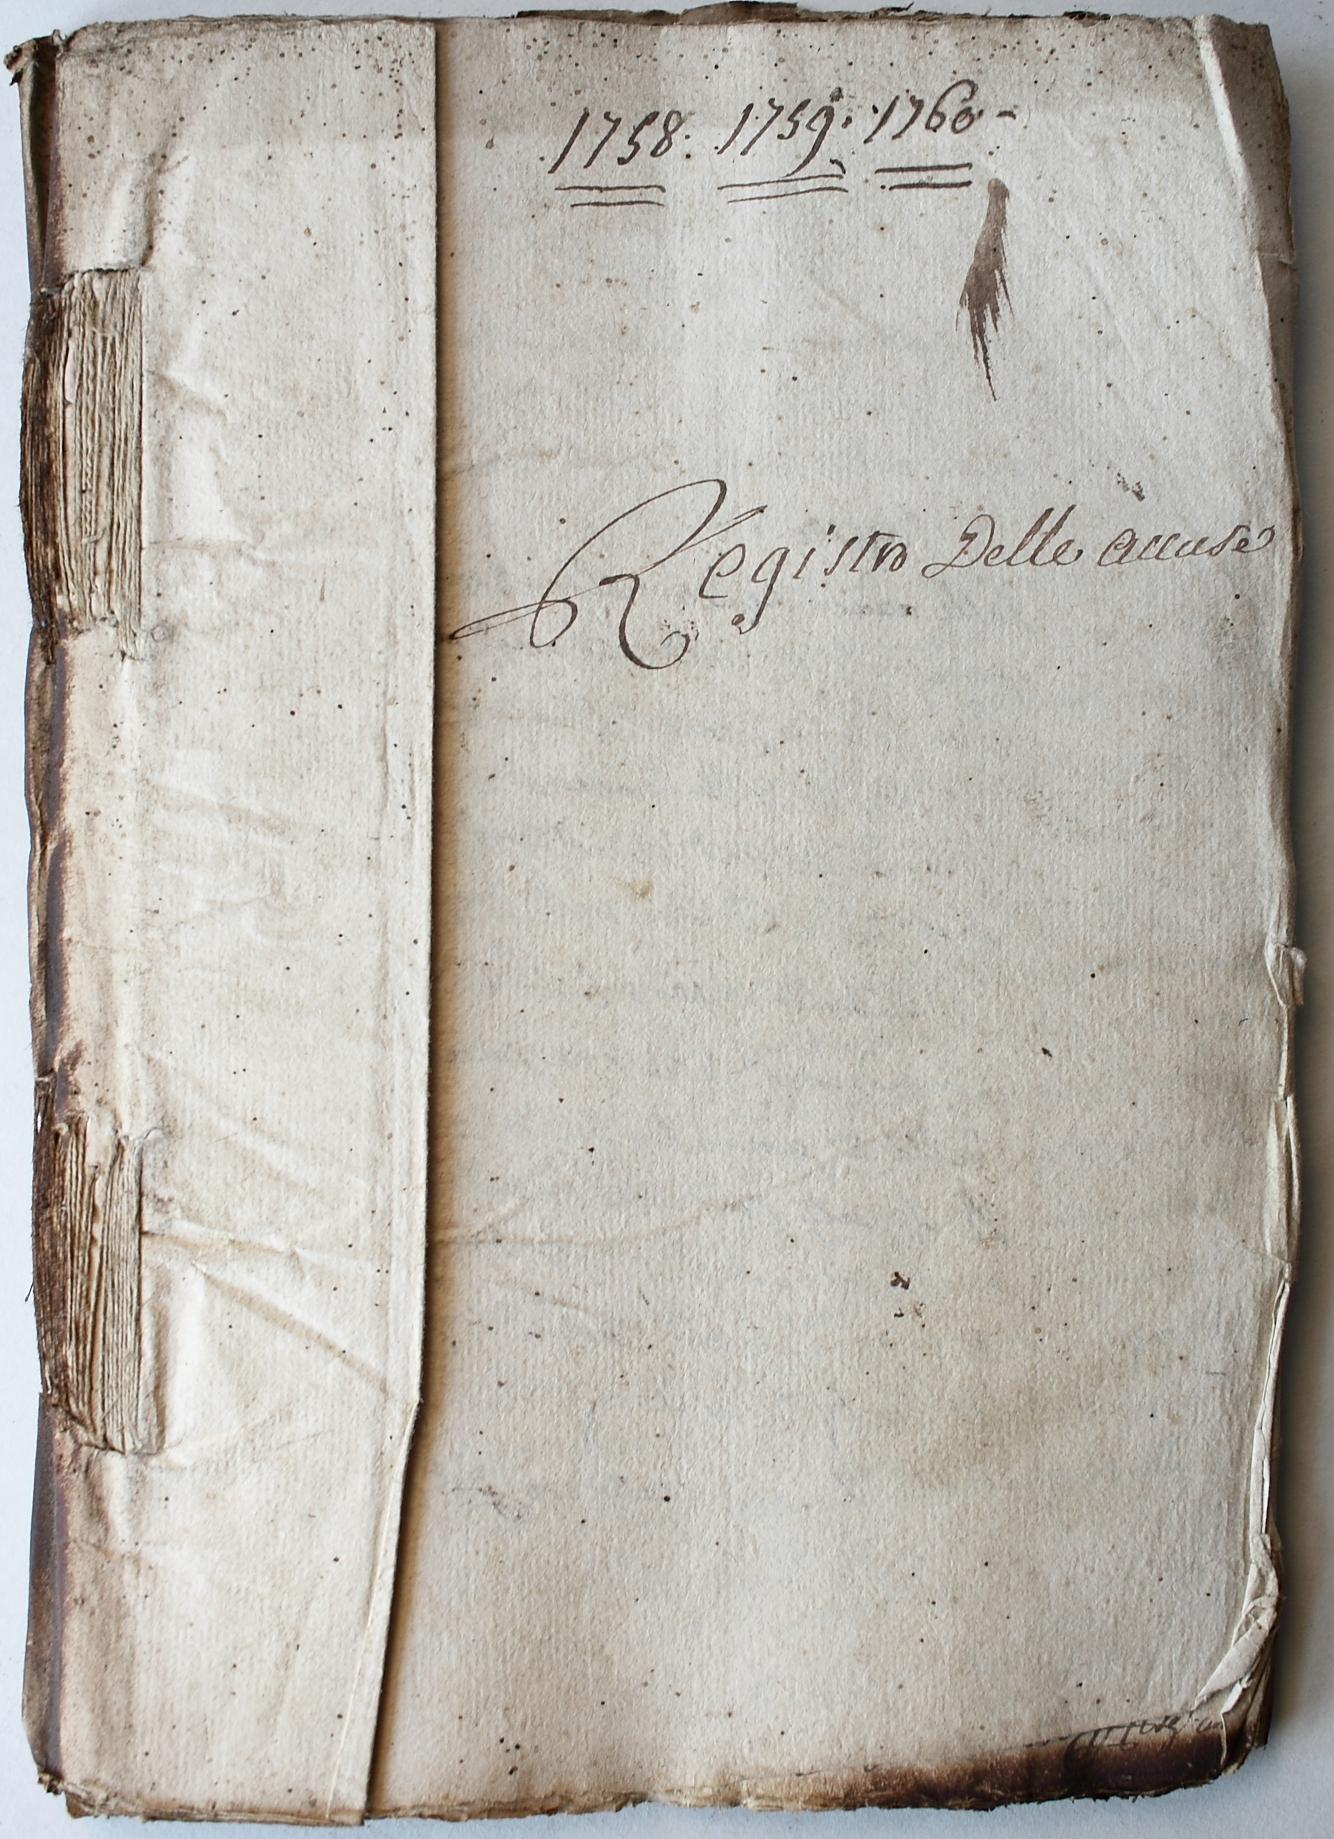 1758. 1759. 1760-
Registro Delle accuse